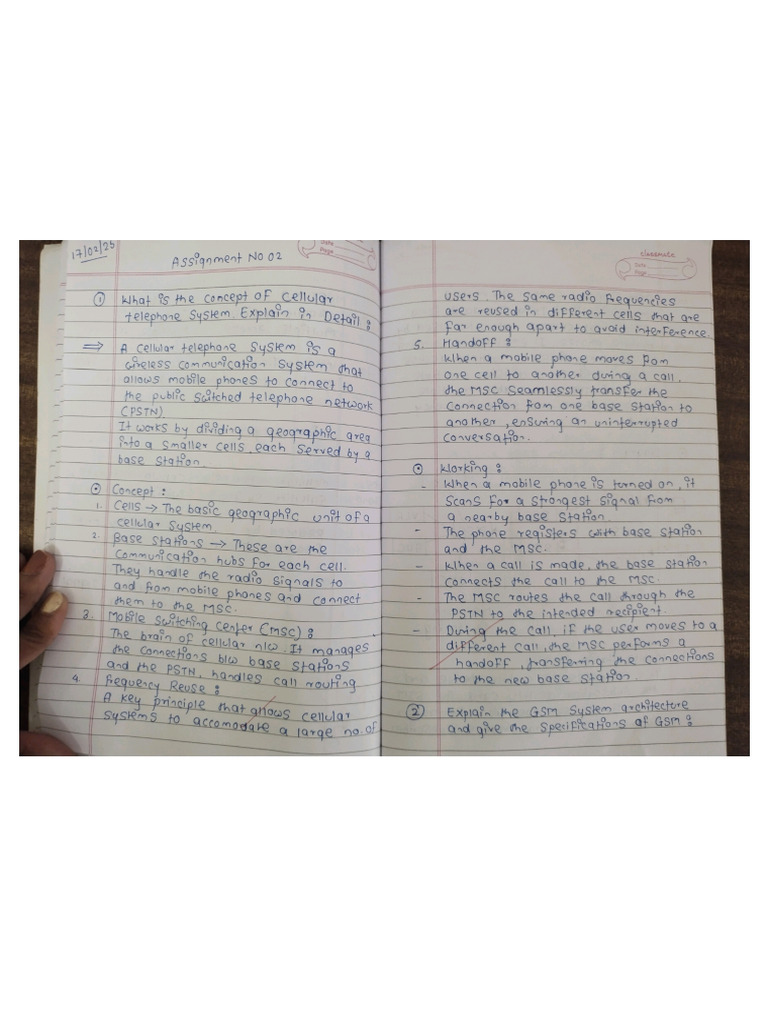 17/02/25
Assignment No 02
Date
Page
① What is the concept of cellular
telephone System Explain in Detail :
⇒ A cellular telephone system is a
wireless communication system that
allows mobile phones to connect to
the public switched telephone network
(PSTN).
It works by dividing a geographic area
into a smaller cells, each served by a
base station.
⊙ Concept :
1. Cells → The basic geographic unit of a
cellular system.
2. Base stations → These are the
communication hubs for each cell.
They handle the radio signals to
and from mobile phones and connect
them to the MSC.
3. Mobile switching center (MSC) :
The brain of cellular n/w. It manages
the connections b/w base stations
and the PSTN, handles call routing
4. Frequency Reuse :
A key principle that allows cellular
systems to accomodate a large no. of
classmate
Date
Page
users. The same radio frequencies
are reused in different cells that are
far enough apart to avoid interference.
5. Handoff :
When a mobile phone moves from
one cell to another during a call,
the MSC seamlessly transfer the
connection from one base station to
another, ensuring an uninterrupted
conversation.
⊙ Working :
- When a mobile phone is turned on, it
scans for a strongest signal from
a nearby base station.
- The phone registers with base station
and the MSC.
- When a call is made, the base station
connects the call to the MSC.
- The MSC routes the call through the
PSTN to the intended recipient.
- During the call, if the user moves to a
different call, the MSC performs a
handoff, transferring the connections
to the new base station.
② Explain the GSM System architecture
and give the specifications of GSM :